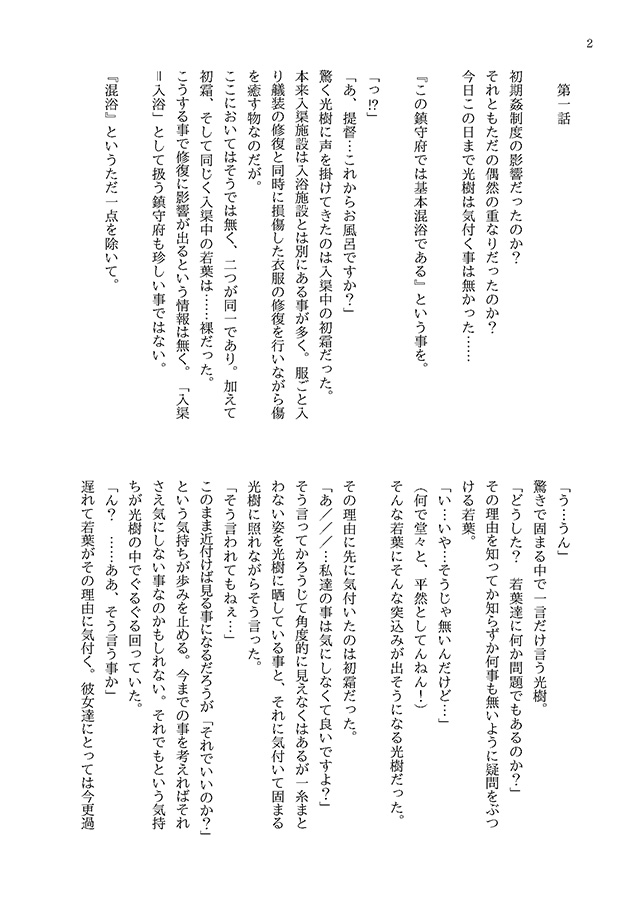 2
第一話
初期姦制度の影響だったのか？
それともただの偶然の重なりだったのか？
今日この日まで光樹は気付く事は無かった……
『この鎮守府では基本混浴である』という事を。
「っ!?」
「あ、提督…これからお風呂ですか？」
驚く光樹に声を掛けてきたのは入渠中の初霜だった。
本来入渠施設は入浴施設とは別にある事が多く。服ごと入
り艤装の修復と同時に損傷した衣服の修復を行いながら傷
を癒す物なのだが。
ここにおいてはそうでは無く、二つが同一であり。加えて
初霜、そして同じく入渠中の若葉は……裸だった。
こうする事で修復に影響が出るという情報は無く。「入渠
＝入浴」として扱う鎮守府も珍しい事ではない。
『混浴』というただ一点を除いて。
「う…うん」
驚きで固まる中で一言だけ言う光樹。
「どうした？　若葉達に何か問題でもあるのか？」
その理由を知ってか知らずか何事も無いように疑問をぶつ
ける若葉。
「い…いや…そうじゃ無いんだけど…」
（何で堂々と、平然としてんねん！）
そんな若葉にそんな突込みが出そうになる光樹だった。
その理由に先に気付いたのは初霜だった。
「あ／／／…私達の事は気にしなくて良いですよ？」
そう言ってかろうじて角度的に見えなくはあるが一糸まと
わない姿を光樹に晒している事と、それに気付いて固まる
光樹に照れながらそう言った。
「そう言われてもねぇ…」
このまま近付けば見る事になるだろうが「それでいいのか？」
という気持ちが歩みを止める。今までの事を考えればそれ
さえ気にしない事なのかもしれない。それでもという気持
ちが光樹の中でぐるぐる回っていた。
「ん？　……ああ、そう言う事か」
遅れて若葉がその理由に気付く。彼女達にとっては今更過